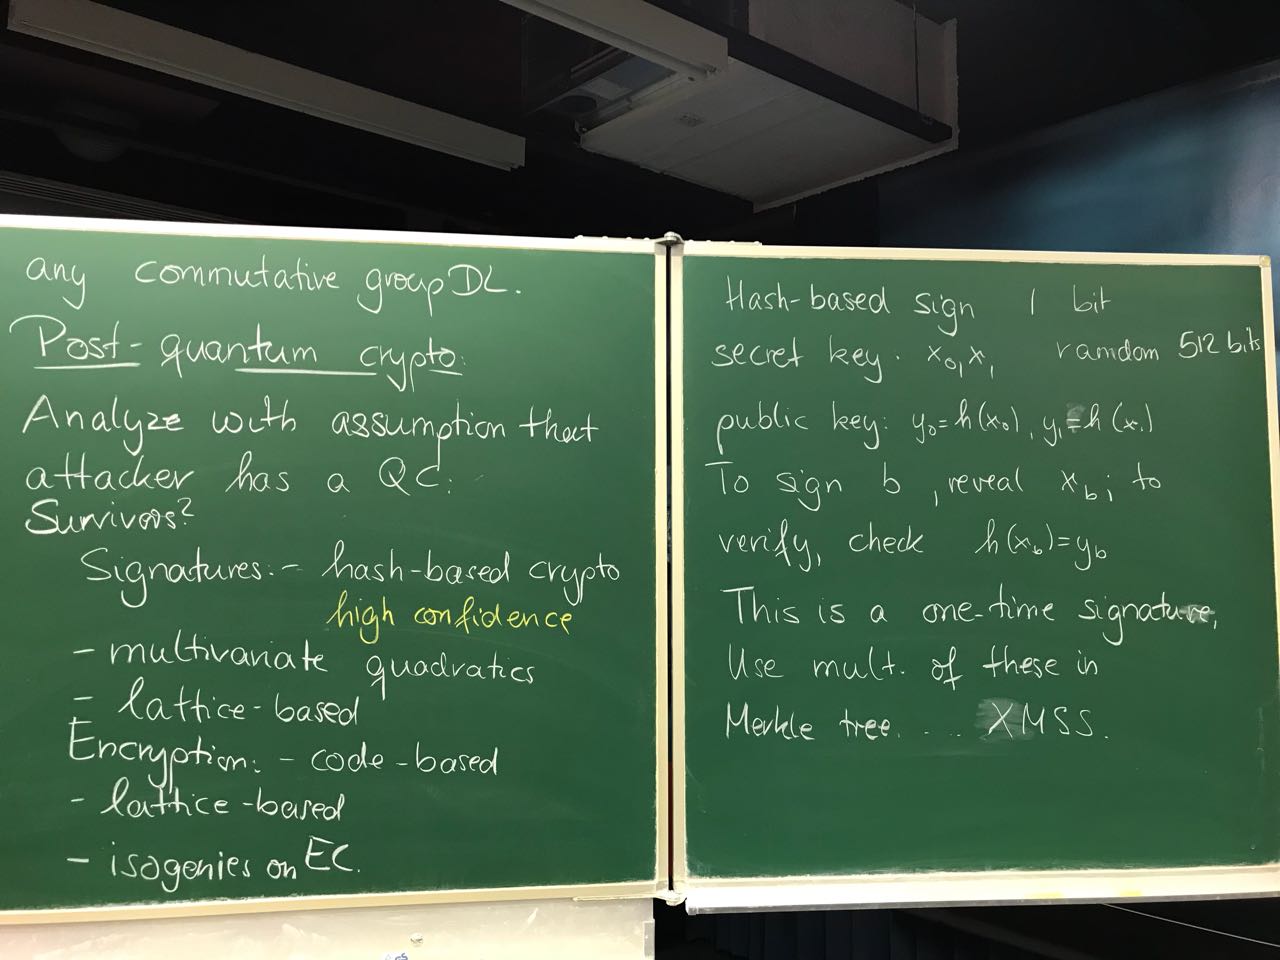 any commutative group DL.
Post-quantum crypto:
Analyze with assumption that
attacker has a QC.
Survivors?
Signatures: - hash-based crypto
high confidence
- multivariate quadratics
- lattice-based
Encryption: - code-based
- lattice-based
- isogenies on EC.
Hash-based sign 1 bit
secret key. x₀, x₁ random 512 bits
public key: y₀=h(x₀), y₁=h(x₁)
To sign b, reveal x_b; to
verify, check h(x_b)=y_b
This is a one-time signature,
Use mult. of these in
Merkle tree. ... XMSS.